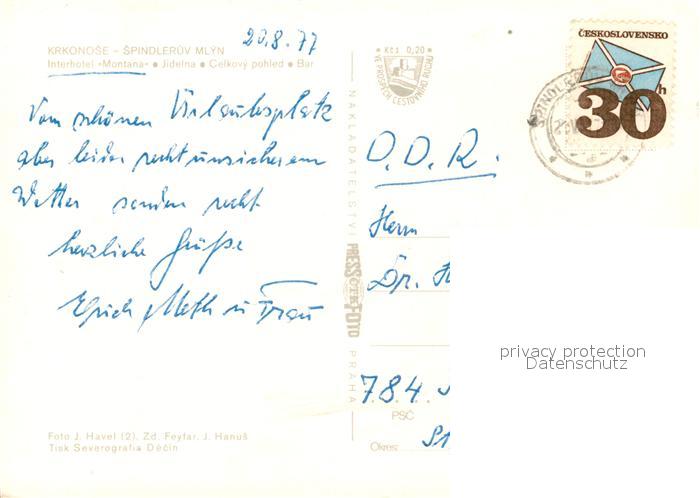 20.8.77
KRKONOŠE – ŠPINDLERŮV MLÝN
Interhotel «Montana» • Jídelna • Celkový pohled • Bar
Vom schönen Urlaubsplatz
aber leider recht unsicherem
Wetter senden recht
herzliche Grüße
Erich u. Frau
Foto J. Havel (2), Zd. Feyfar, J. Hanuš
Tisk Severografia Děčín
NAKLADATELSTVÍ PRESSFOTO PRAHA
Kčs 0,20
VE PROSPĚCH CESTOVNÍHO RUCHU
ČESKOSLOVENSKO
30h
D.D.R.
Herrn
Dr. H
784
PSČ
Okres:
privacy protection
Datenschutz